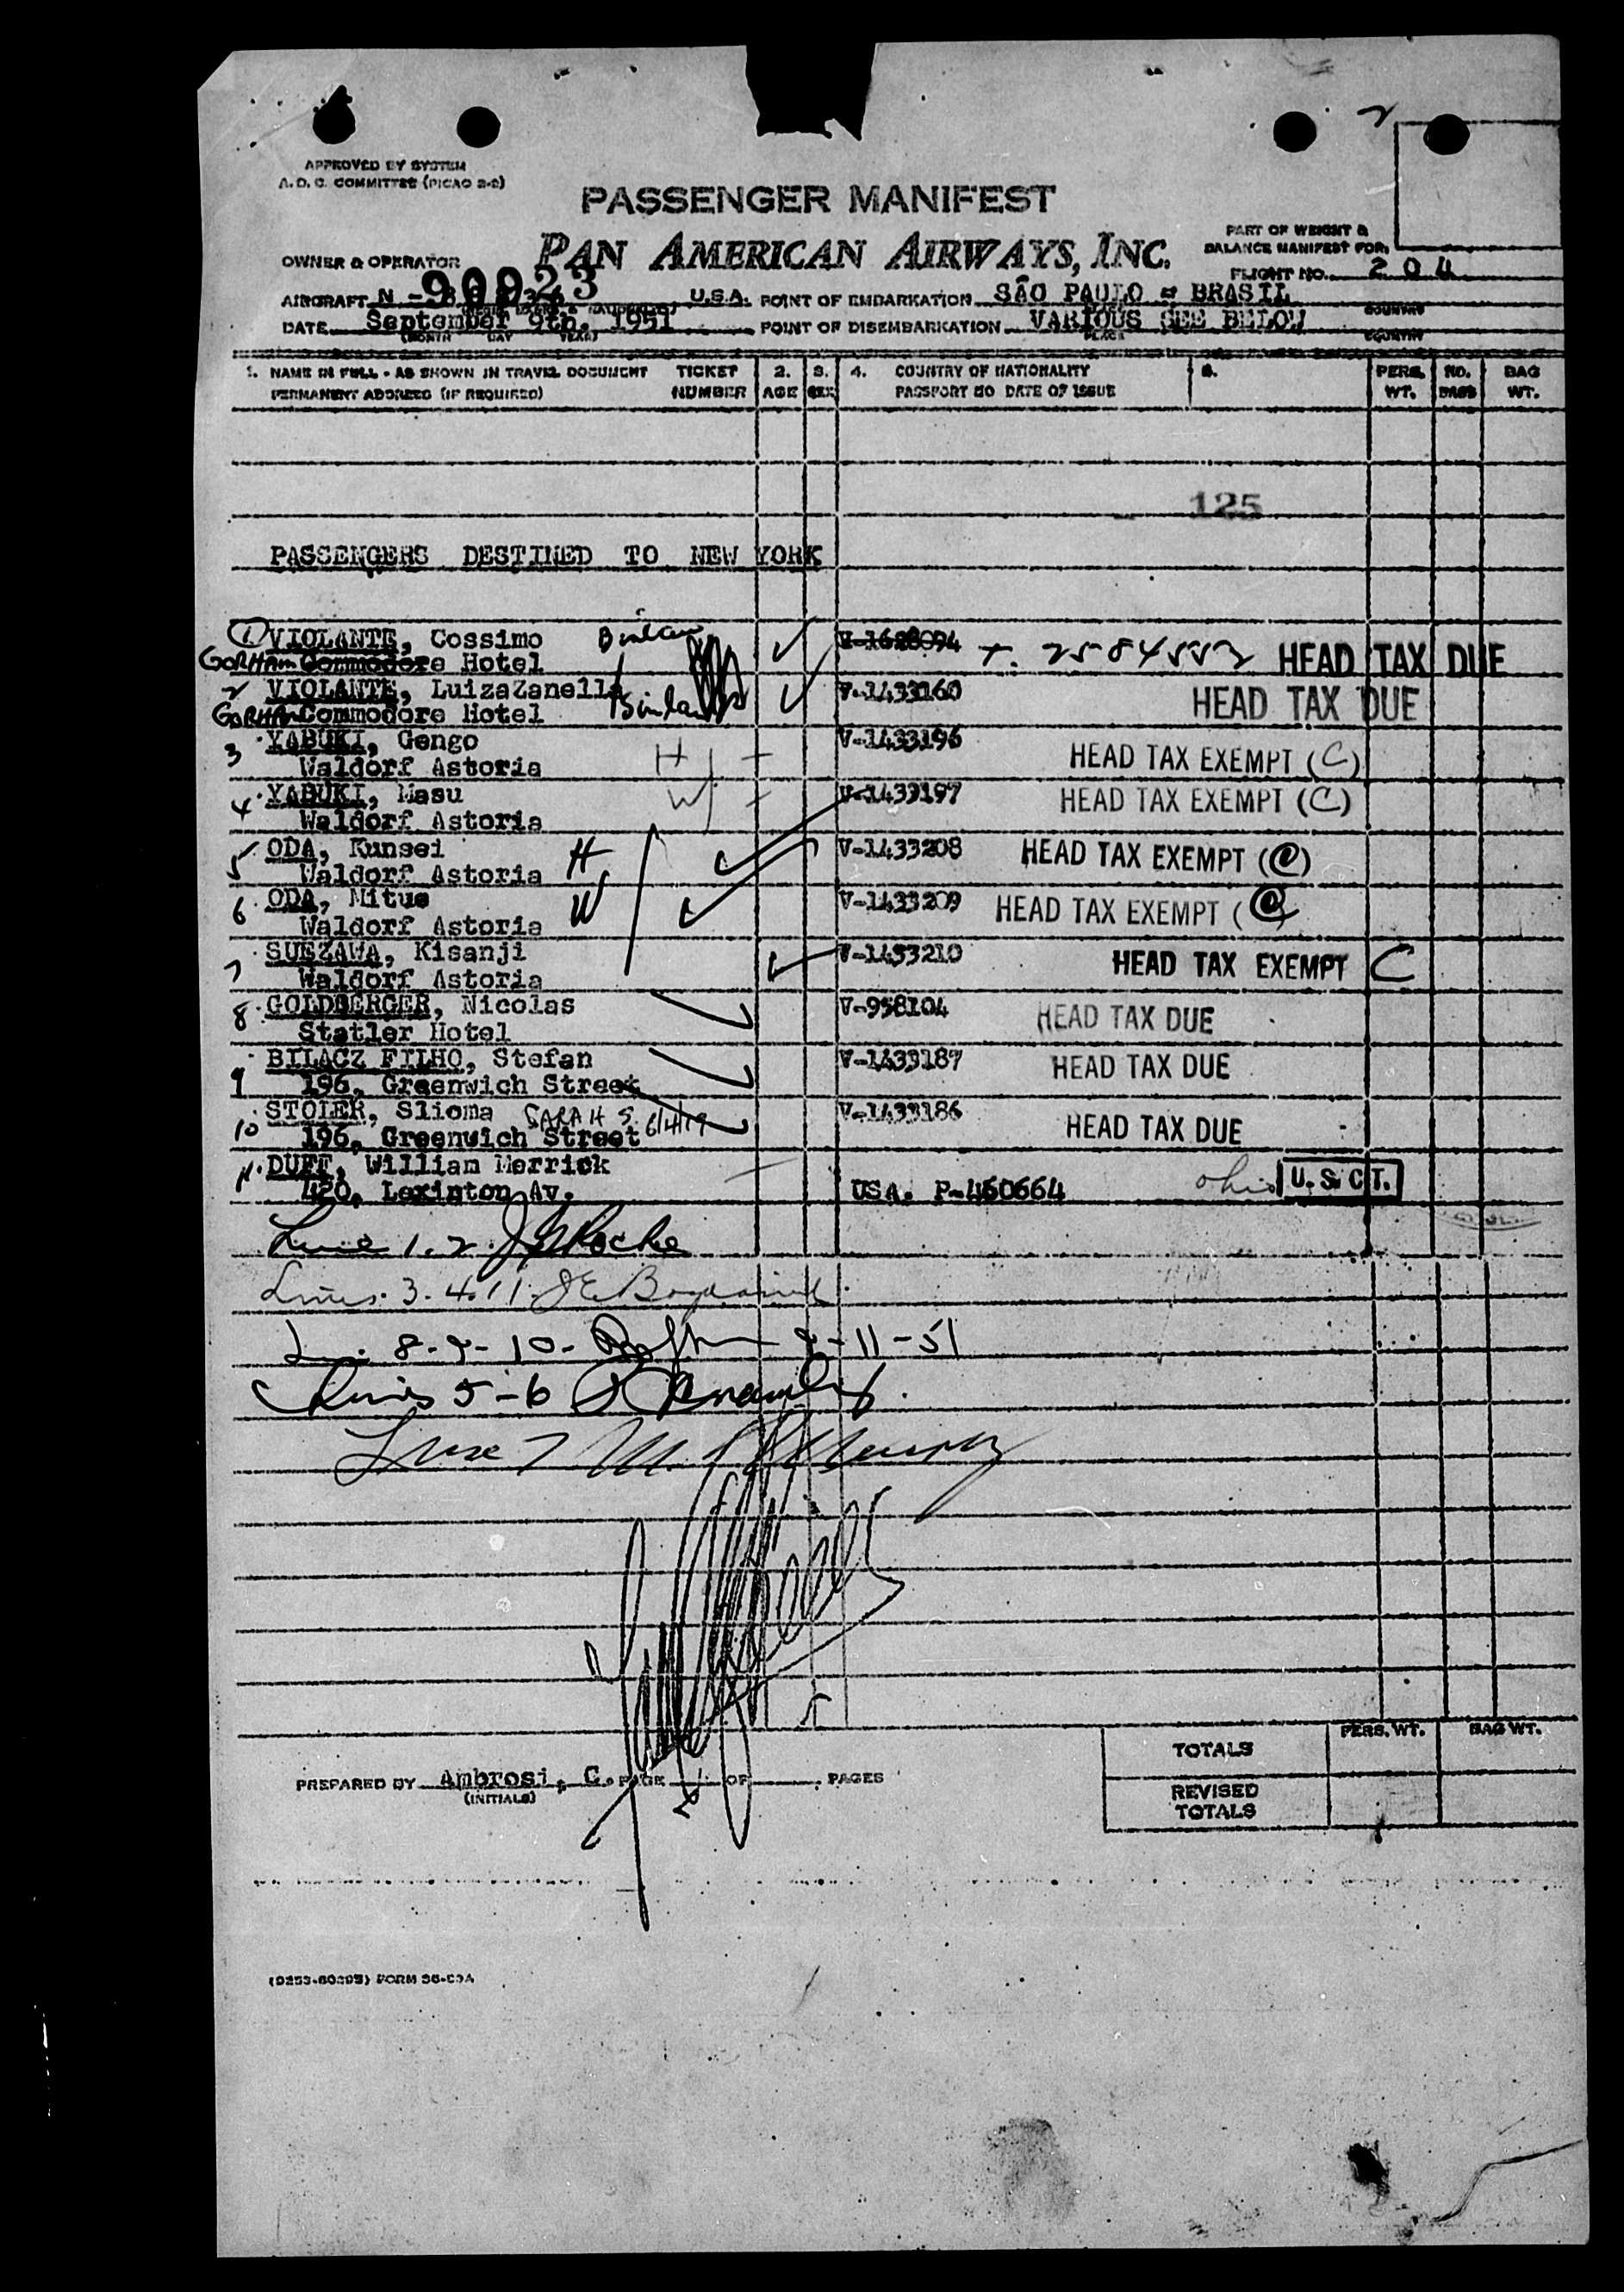 APPROVED BY SYSTEM
A. D. C. COMMITTEE (PICAO 2-2)
PASSENGER MANIFEST
PAN AMERICAN AIRWAYS, INC.
PART OF WEIGHT &
BALANCE MANIFEST FOR:
OWNER & OPERATOR
FLIGHT NO. 204
AIRCRAFT N - 90923 U.S.A. POINT OF EMBARKATION SÃO PAULO - BRASIL
COUNTRY
DATE September 9th, 1951 POINT OF DISEMBARKATION VARIOUS SEE BELOW
(MONTH DAY YEAR) PLACE COUNTRY
1. NAME IN FULL - AS SHOWN IN TRAVEL DOCUMENT TICKET 2. 3. 4. COUNTRY OF NATIONALITY 5. PERS. NO. BAG
PERMANENT ADDRESS (IF REQUIRED) NUMBER AGE SEX PASSPORT NO DATE OF ISSUE WT. BAGS WT.
125
PASSENGERS DESTINED TO NEW YORK
1 VIOLANTE, Cossimo V-1628094 HEAD TAX DUE
GORHAM Commodore Hotel
2 VIOLANTE, LuizaZanella V-1433160 HEAD TAX DUE
GORHAM Commodore Hotel
3 YABUKI, Gengo H V-1433196 HEAD TAX EXEMPT (C)
Waldorf Astoria
4 YABUKI, Masu W V-1433197 HEAD TAX EXEMPT (C)
Waldorf Astoria
5 ODA, Kunsei V-1433208 HEAD TAX EXEMPT (C)
Waldorf Astoria H
6 ODA, Mitue W V-1433209 HEAD TAX EXEMPT (C)
Waldorf Astoria
7 SUEZAWA, Kisanji V-1433210 HEAD TAX EXEMPT C
Waldorf Astoria
8 GOLDBERGER, Nicolas V-958104 HEAD TAX DUE
Statler Hotel
9 BILACZ FILHO, Stefan V-1433187 HEAD TAX DUE
196, Greenwich Street
10 STOLER, Slioma SARAH S. V-1433186 HEAD TAX DUE
196, Greenwich Street
11. DUFF, William Merrick
420, Lexinton Av. USA. P-460664 Ohio U. S. CT.
Line 1.2 Roche
Lines. 3. 4. 11.
8-9-10- 9-11-51
Lines 5-6
Line 7 M. Murphy
PERS. WT. BAG WT.
TOTALS
PREPARED BY Ambrosi, C. PAGE OF PAGES
(INITIALS)
REVISED
TOTALS